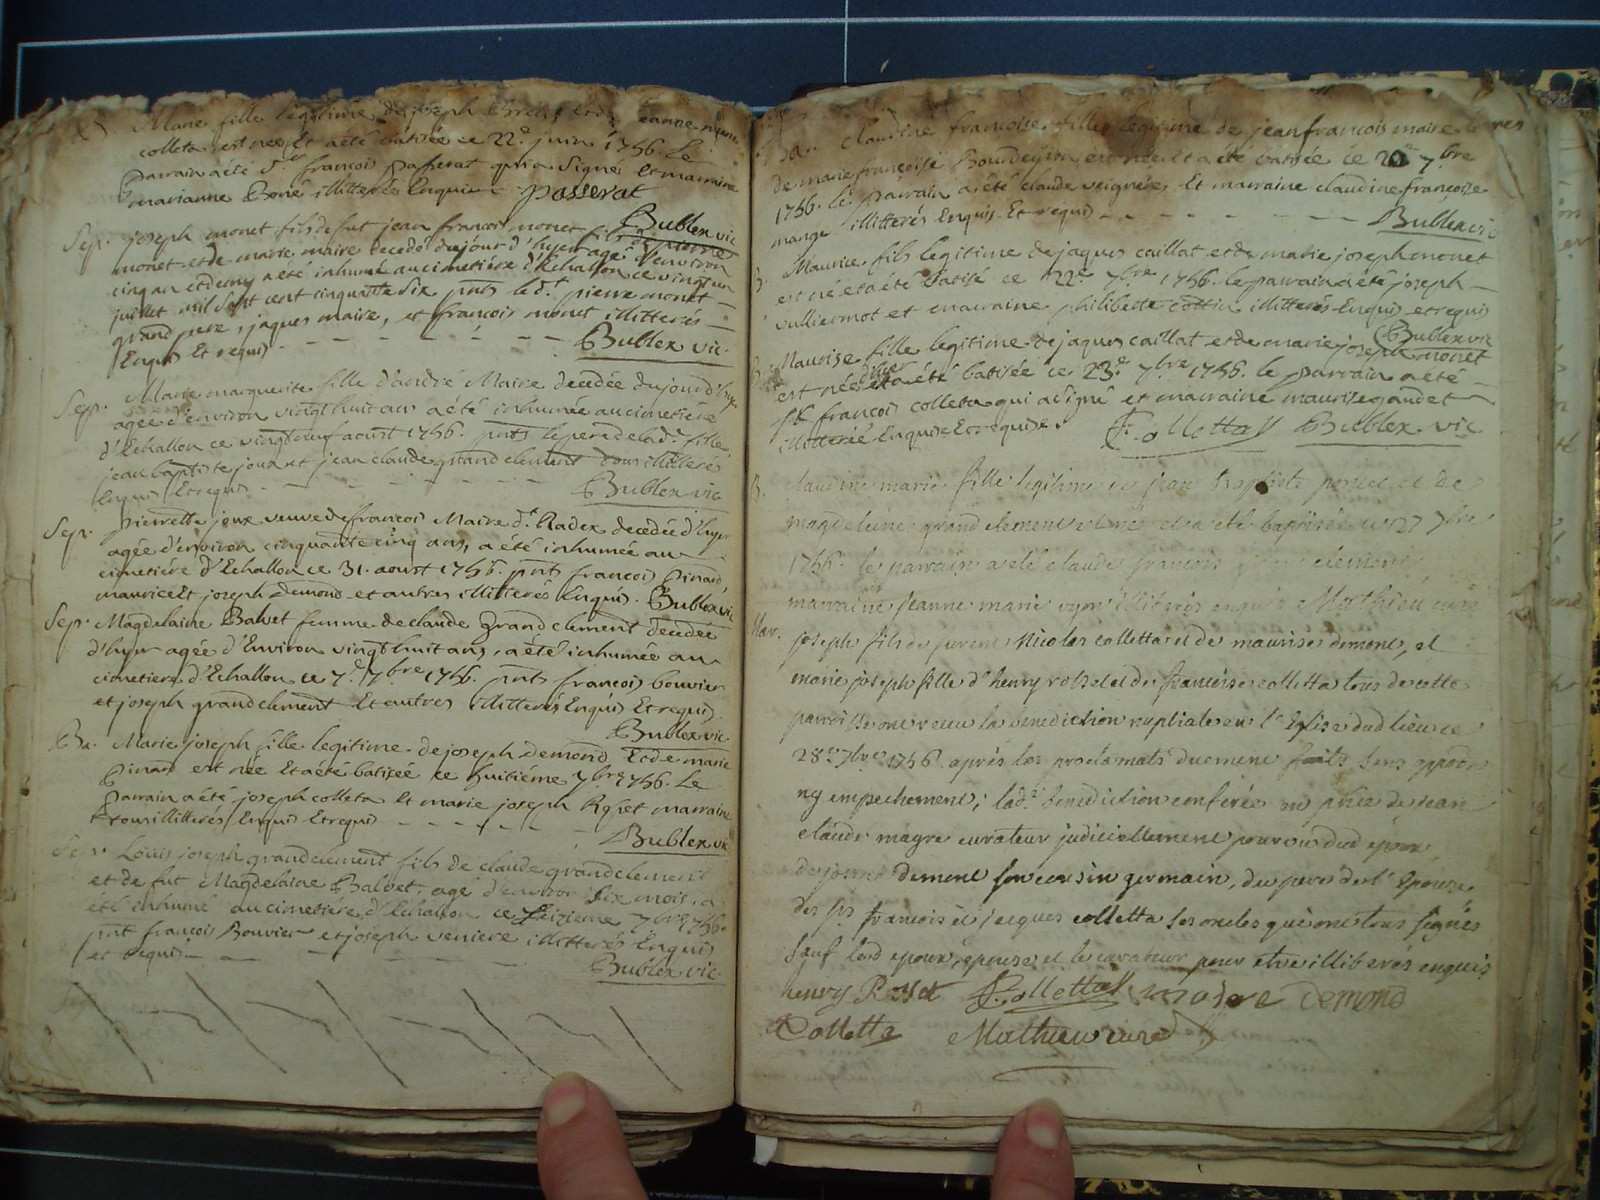 Marie fille légitime de joseph et de jeanne marie
colleta est née Et a été batisée ce 22e. juin 1756. Le
parrain a été Sr. françois passerat qui a Signé Et marraine
marianne Boné illitterée Enquise passerat
Bublex vic
Sep. joseph monet fils de fut jean françois monet fils de pierre
monet et de marie maire decedé du jour d'hyer agé d'environ
cinq an et demy a eté inhumé au cimetiére d'Echallon ce vingt un
juillet mil Sept cent cinquante Six pnts led.t pierre monet
grand pere, jaques maire, et françois monet illitterés
Enquis Et requis Bublex vic.
Sep. Marie marguerite fille d'andré Maire decedée du jourd'huy
agée d'environ vingt huit ans a été inhumée au cimetiére
d'Echallon ce vingt neuf aoust 1756. pnts le pere de lad.e fille
jean baptiste jouant jean claude grandclement tous illitterés
Enquis Et requis Bublex vic
Sep. Pierrette joux veuve de francois Maire d.t Radex decedée d'hyer
agée d'environ cinquante cinq ans, a été inhumée au
cimetiére d'Echallon ce 31. aoust 1756. pnts francois Pinard,
maurice Et joseph Demond et autres illitterés Enquis. Bublex vic
Sep. Magdelaine Balvet femme de claude Grandclement decedée
d'hyer agée d'Environ vingt huit ans, a été inhumée au
cimetiere d'Echallon ce 7e. 7bre 1756. pnts francois bouvier
et joseph grandclement Et autres illitterés Enquis Et requis.
Bublex vic.
Ba. Marie joseph fille legitime de joseph Demond Et de marie
Pinard est née Et a été batisée ce huitieme 7bre 1756. Le
parrain a été joseph colleta Et marie joseph Rosset marraine
tous illitterés Enquis Et requis Bublex vic
Sep. Louis joseph grandclement fils de claude grandclement
et de fut Magdelaine Balvet, agé d'environ Six mois, a
été inhumé au cimetiére d'Echallon ce Seizieme 7bre 1756.
pnt francois Bouvier et joseph veniere illitterés Enquis
et requis Bublex vic.
Ba. claudine francoise fille legitime de jean francois maire et
de marie françoise Bourdeyron est née Et a été batisée ce 20e 7bre
1756. le parrain a été claude Et marraine claudine françoise
mange illitterés Enquis Et requis Bublex vic
B. Maurice fils legitime de jaques caillat et de marie joseph monet
est né et a été Batisé ce 22e. 7bre 1756. le parrain a été joseph
vulliermot et marraine philiberte cottin illitterés Enquis et requis
Bublex vic
B. Maurise fille legitime de jaques caillat et de marie joseph monet
est née et a été batisée ce 23e. 7bre 1756. le parrain a été
Sr. francois colleta qui a signé et marraine maurise gandet
illitterée Enquise Et requise. F. Collettas Bublex vic
B. claudine marie fille legitime de jean baptiste poncet et de
magdeleine grand clement est née et a été baptisée le 27 7bre
1756. le parrain a été claude françois clement
marraine jeanne marie illiterés enquis Mathieu curé
Mar. joseph fils de Nicolas colletta et de maurise demond, et
marie joseph fille d'henry rosset et de francoise colletta tous de cette
paroisse ont reçu la benediction nuptiale en l'Eglise dud lieu ce
28e 7bre 1756. aprés les proclamats duement faits sans opposition
ny empechement; lad.e benediction conferée en pnce de jean
claude magre curateur judiciellement pourvu dud epoux,
de joseph demond son cousin germain, du pere de l'Epouse,
des srs francois et jacques colletta ses oncles qui ont tous signés
Sauf lesd epoux, epouse et le curateur pour etre illiteres enquis
henry Rosset F. Collettas demond
J Colletta Mathieu curé